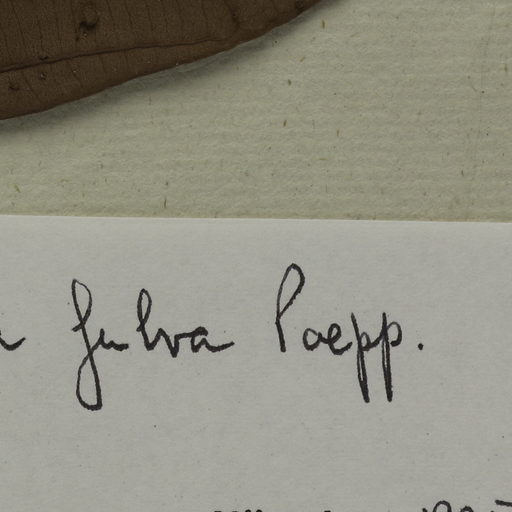 fulva Poepp.